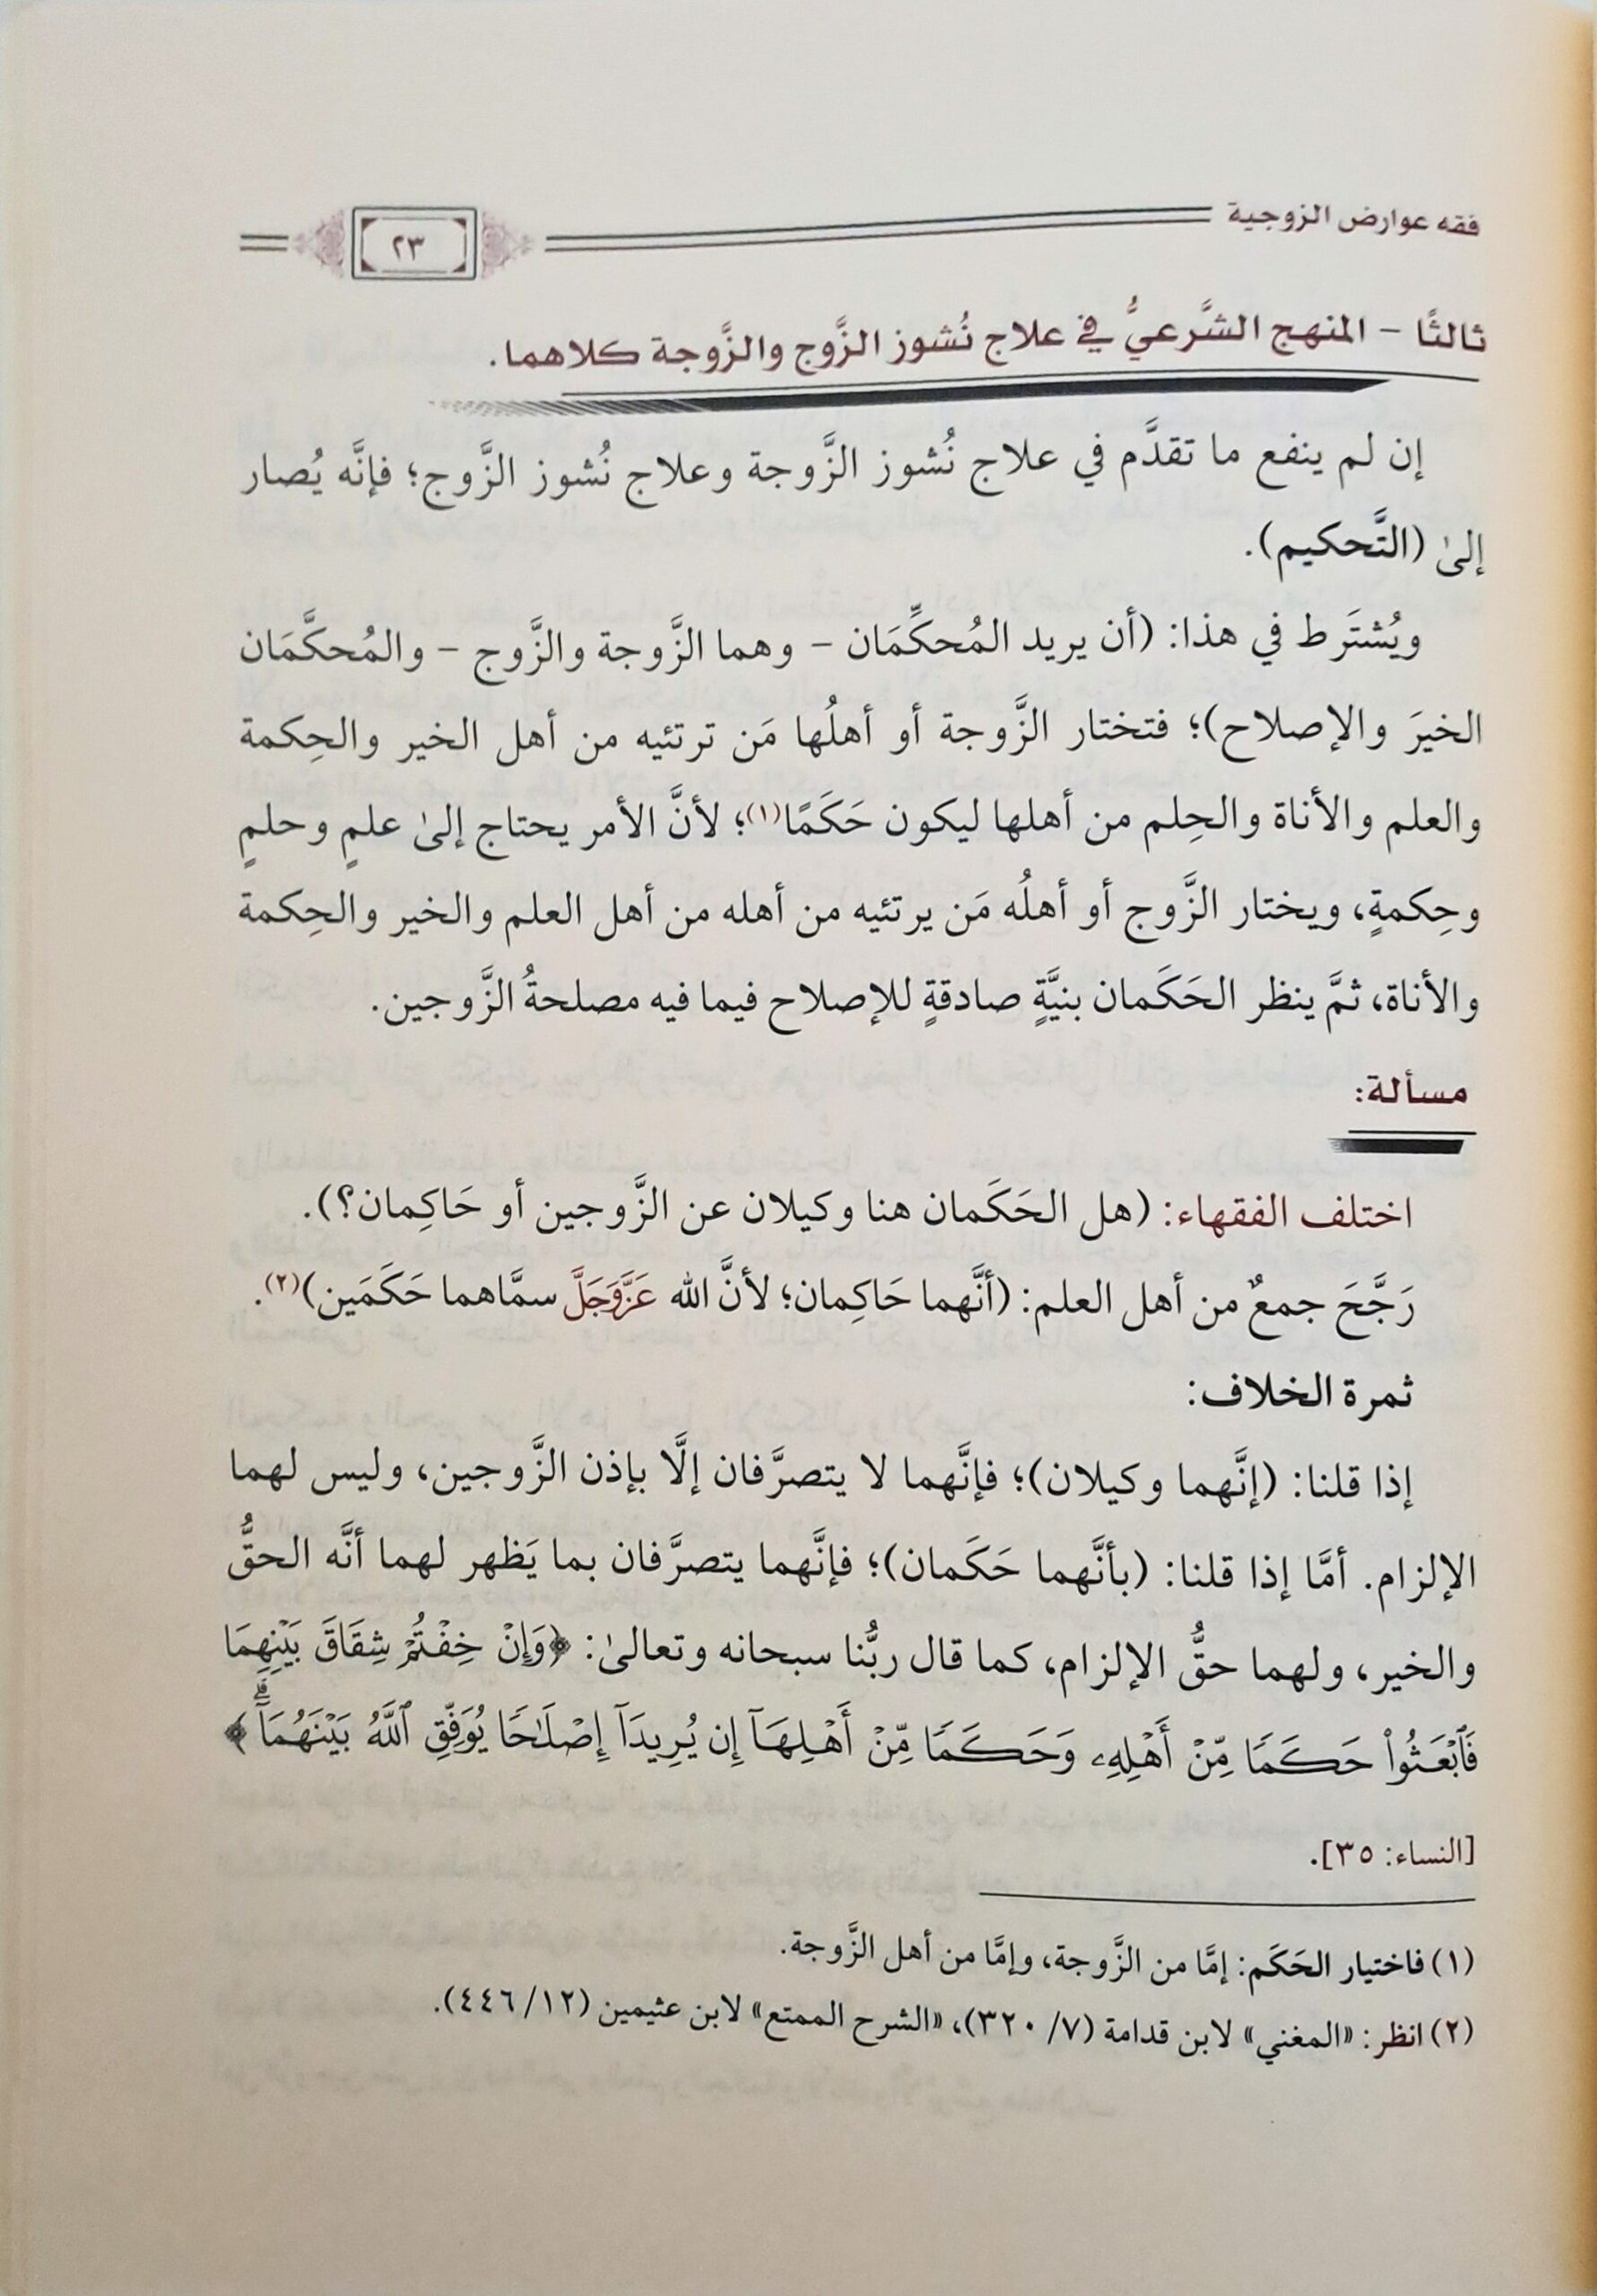 فقه عوارض الزوجية
٢٣
ثالثًا - المنهج الشَّرعيُّ في علاج نُشوز الزَّوج والزَّوجة كلاهما.
إن لم ينفع ما تقدَّم في علاج نُشوز الزَّوجة وعلاج نُشوز الزَّوج؛ فإنَّه يُصار
إلىٰ (التَّحكيم).
ويُشتَرط في هذا: (أن يريد المُحكِّمَان - وهما الزَّوجة والزَّوج - والمُحكَّمَان
الخيرَ والإصلاح)؛ فتختار الزَّوجة أو أهلُها مَن ترتئيه من أهل الخير والحِكمة
والعلم والأناة والحِلم من أهلها ليكون حَكَمًا(١)؛ لأنَّ الأمر يحتاج إلىٰ علمٍ وحلمٍ
وحِكمةٍ، ويختار الزَّوج أو أهلُه مَن يرتئيه من أهله من أهل العلم والخير والحِكمة
والأناة، ثمَّ ينظر الحَكَمان بنيَّةٍ صادقةٍ للإصلاح فيما فيه مصلحةُ الزَّوجين.
مسألة:
اختلف الفقهاء: (هل الحَكَمان هنا وكيلان عن الزَّوجين أو حَاكِمان؟).
رَجَّحَ جمعٌ من أهل العلم: (أنَّهما حَاكِمان؛ لأنَّ الله عَزَّوَجَلَّ سمَّاهما حَكَمَين)(٢).
ثمرة الخلاف:
إذا قلنا: (إنَّهما وكيلان)؛ فإنَّهما لا يتصرَّفان إلَّا بإذن الزَّوجين، وليس لهما
الإلزام. أمَّا إذا قلنا: (بأنَّهما حَكَمان)؛ فإنَّهما يتصرَّفان بما يَظهر لهما أنَّه الحقُّ
والخير، ولهما حقُّ الإلزام، كما قال ربُّنا سبحانه وتعالىٰ: ﴿وَإِنۡ خِفۡتُمۡ شِقَاقَ بَيۡنِهِمَا
فَٱبۡعَثُواْ حَكَمٗا مِّنۡ أَهۡلِهِۦ وَحَكَمٗا مِّنۡ أَهۡلِهَآ إِن يُرِيدَآ إِصۡلَٰحٗا يُوَفِّقِ ٱللَّهُ بَيۡنَهُمَآۗ﴾
[النساء: ٣٥].
(١) فاختيار الحَكَم: إمَّا من الزَّوجة، وإمَّا من أهل الزَّوجة.
(٢) انظر: «المغني» لابن قدامة (٧/ ٣٢٠)، «الشرح الممتع» لابن عثيمين (١٢/ ٤٤٦).